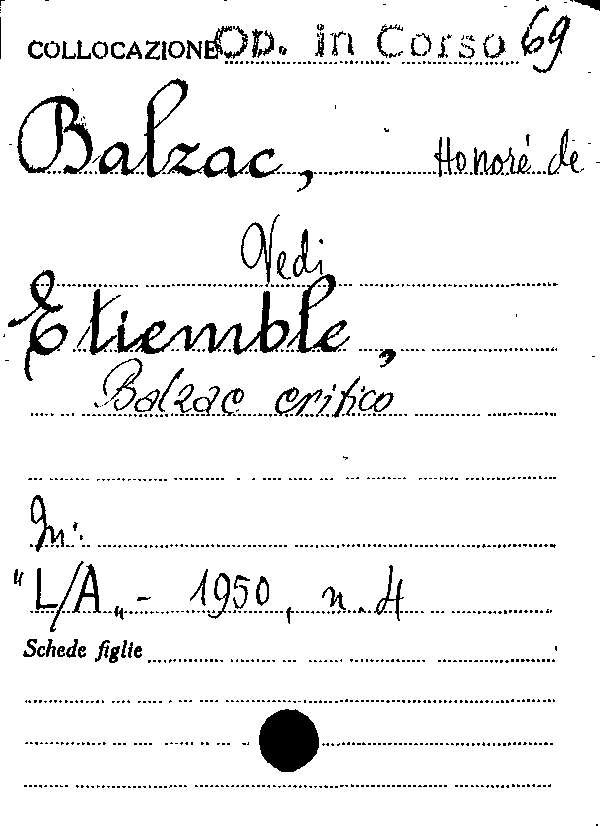 COLLOCAZIONE Op. in Corso 69
Balzac, Honoré de
Vedi
Etiemble,
Balzac critico
In:
"L/A„ - 1950, n. 4
Schede figlie